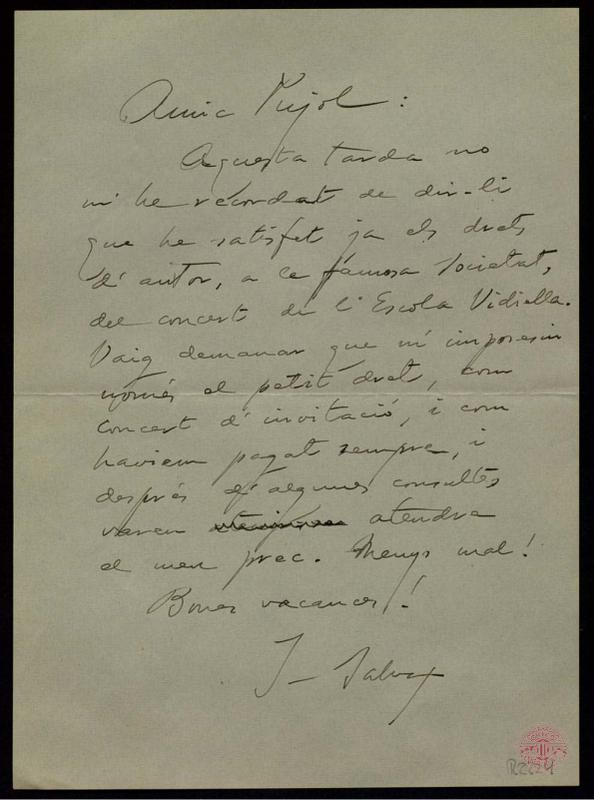 Amic Pujol :
Aquesta tarda no
m'he recordat de dir-li
que he satisfet ja els drets
d'autor, a la famosa Societat,
del concert de l'Escola Vidiella.
Vaig demanar que m'imposesin
només el petit dret, com
concert d'invitació, i com
haviem pagat sempre, i
després d'algunes consultes
varen atendre
el meu prec. Menys mal!
Bones vacances!
J. Salvat
R2224